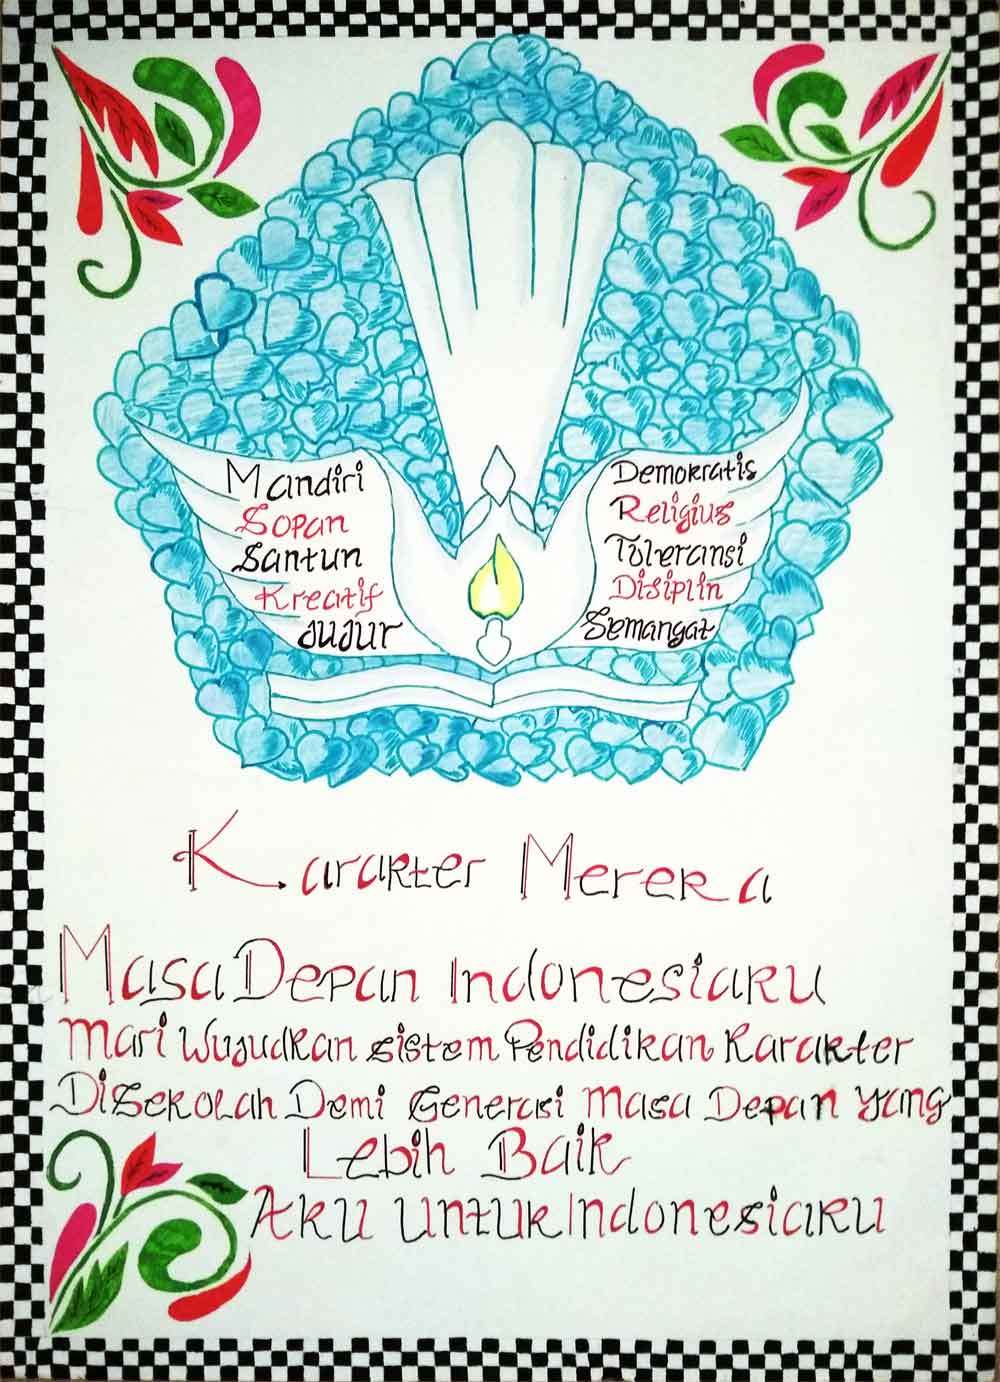 Mandiri
Sopan
Santun
Kreatif
Jujur
Demokratis
Religius
Toleransi
Disiplin
Semangat
Karakter Mereka
Masa Depan Indonesiaku
Mari Wujudkan Sistem Pendidikan Karakter
DiSekolah Demi Generasi Masa Depan yang
Lebih Baik
Aku Untuk Indonesiaku